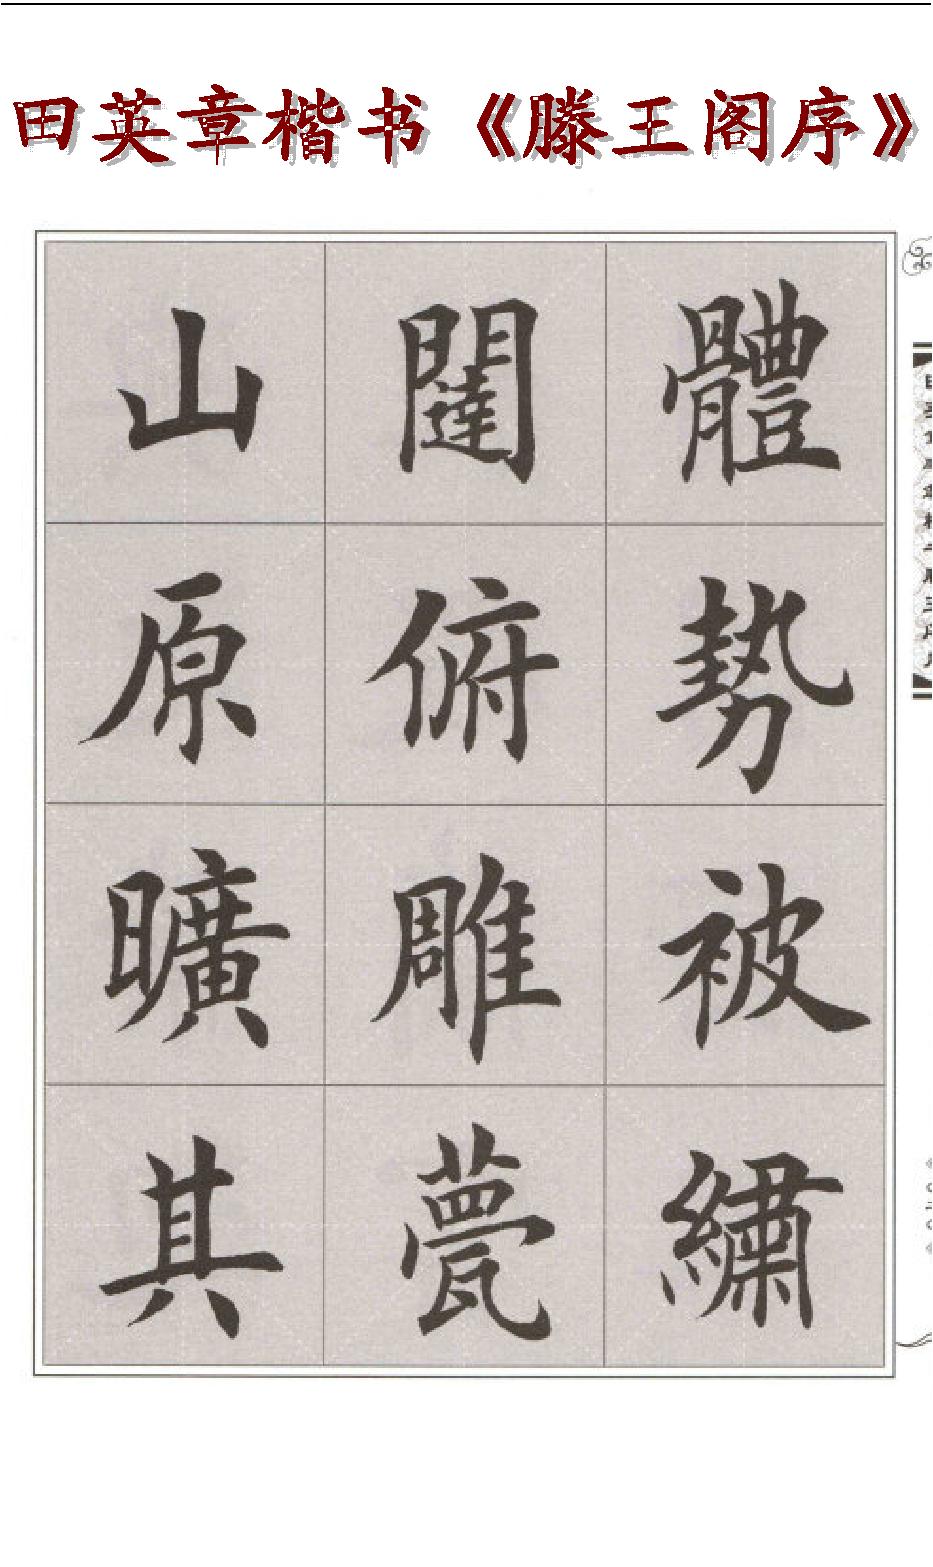 田英章楷书《滕王阁序》
體勢被繡
闥俯雕甍
山原曠其